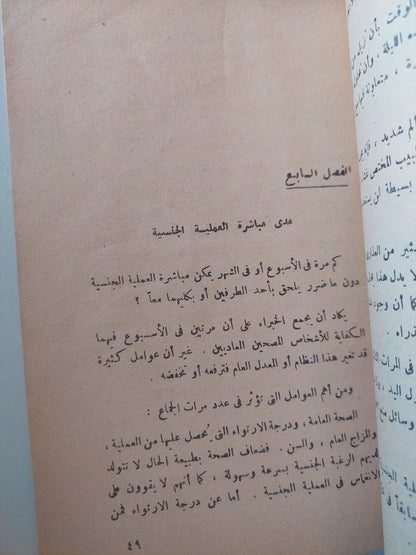 الفصل السابع
مدى مباشرة العملية الجنسية
كم مرة فى الأسبوع أو فى الشهر يمكن مباشرة العملية الجنسية
دون ما ضرر يلحق بأحد الطرفين أو بكليهما معاً ؟
يكاد أن يجمع الخبراء على أن مرتين فى الأسبوع فيهما
الكفاية للأشخاص المصحين العاديين . غير أن عوامل كثيرة
قد تغير هذا النظام أو المعدل العام فترفعه أو تخفضه .
ومن أهم العوامل التى تؤثر فى عدد مرات الجماع :
الصحة العامة، ودرجة الارتواء التى يُحصل عليها من العملية ،
والمزاج العام ، والسن . فضعاف الصحة بطبيعة الحال لا تتولد
لديهم الرغبة الجنسية بسرعة وسهولة ، كما أنهم لا يقوون على
الانغماس فى العملية الجنسية . أما عن درجة الارتواء فمن
٤٩
الوقت بأن
الليلة ، وأن
شديد ،
المختص
بسيطة لن
من
لا يدل هذا
أن وجود
فى المرات
وسائل مع